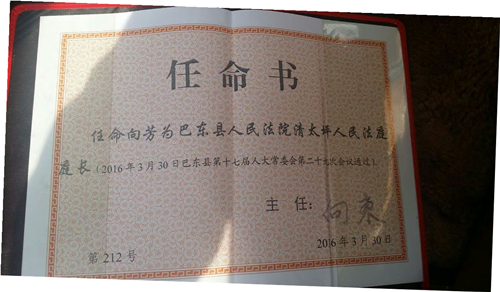 任命书
任命向芳为巴东县人民法院清太坪人民法庭
庭长（2016年3月30日巴东县第十七届人大常委会第二十九次会议通过）。
主 任：向东
2016年3月30日
第212号